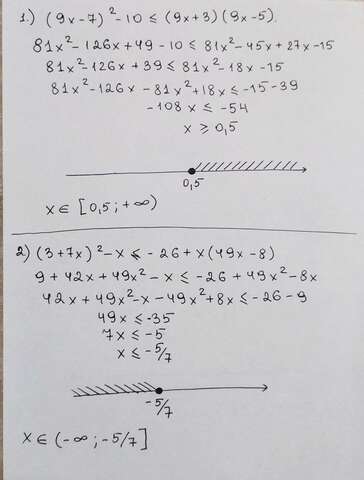 1.) (9x-7)²-10 ≤ (9x+3)(9x-5).
81x²-126x+49-10 ≤ 81x²-45x+27x-15
81x²-126x+39 ≤ 81x²-18x-15
81x²-126x-81x²+18x ≤ -15-39
-108x ≤ -54
x ≥ 0,5
0,5
x ∈ [0,5; +∞)
2) (3+7x)²-x ≤ -26+x(49x-8)
9+42x+49x²-x ≤ -26+49x²-8x
42x+49x²-x-49x²+8x ≤ -26-9
49x ≤ -35
7x ≤ -5
x ≤ -5/7
-5/7
x ∈ (-∞; -5/7]